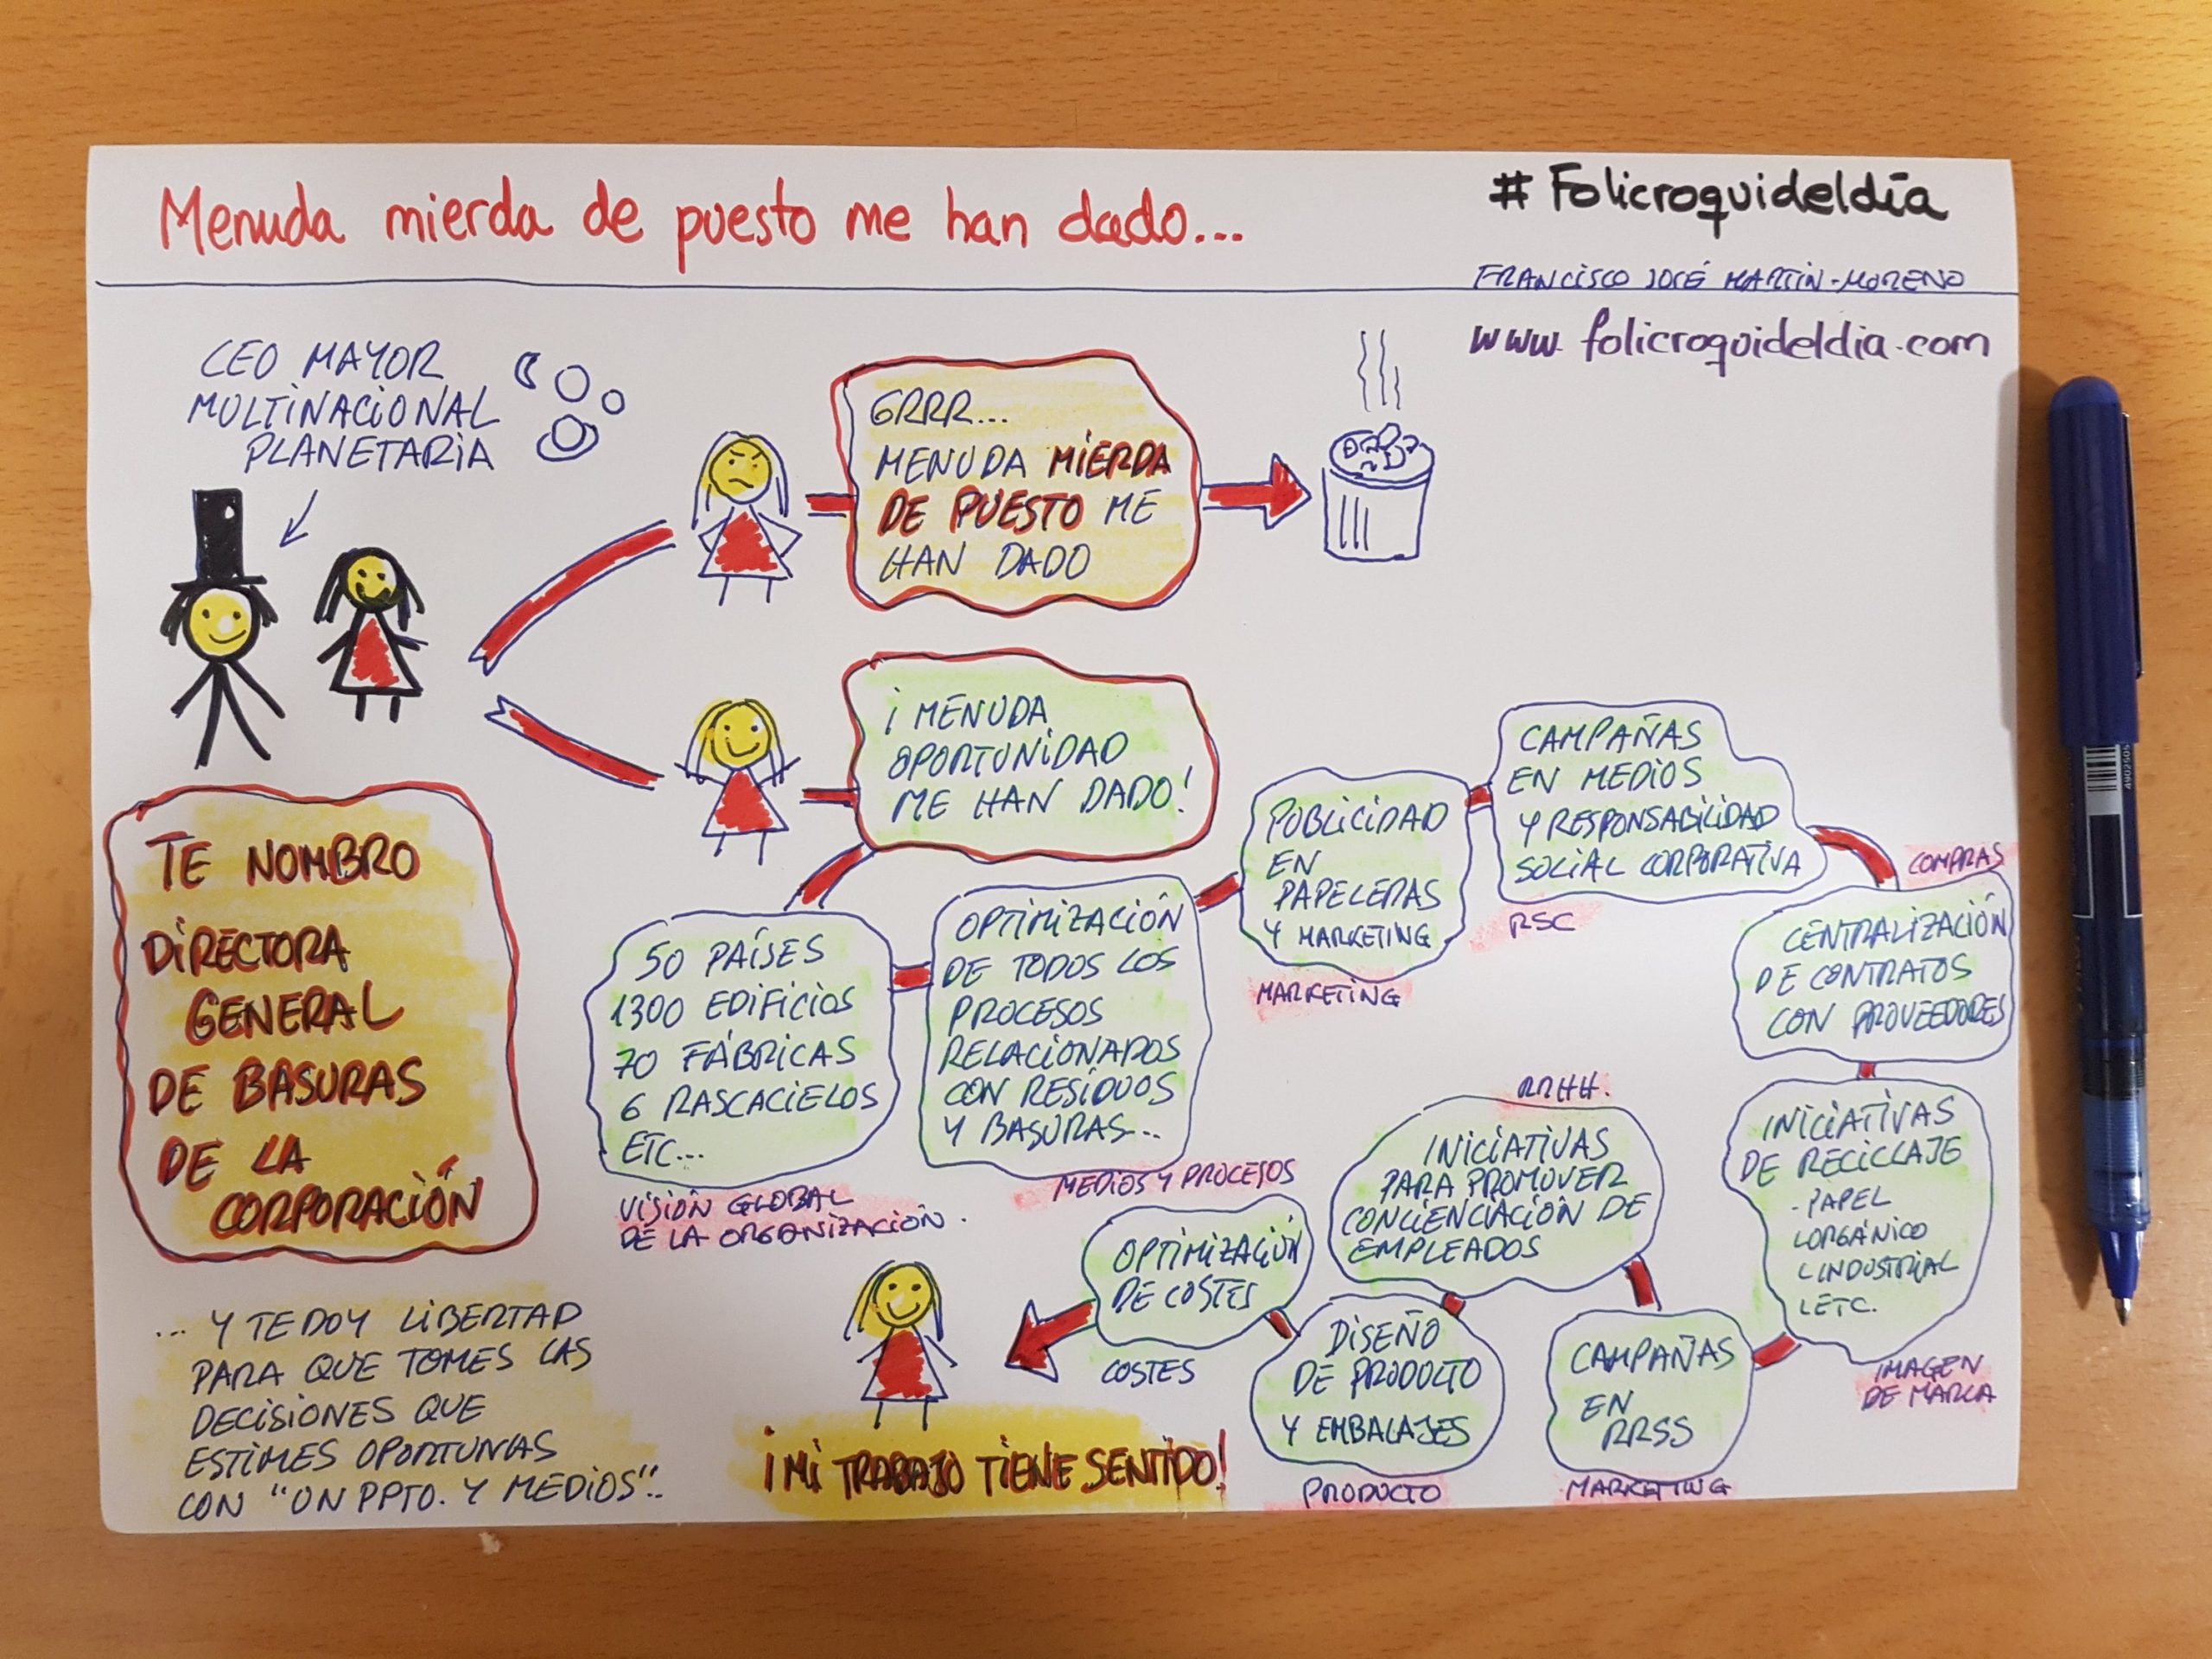 Menuda mierda de puesto me han dado...
# Folicroquideldía
FRANCISCO JOSÉ MARTIN-MORENO
www.folicroquideldia.com
CEO MAYOR
MULTINACIONAL
PLANETARIA
GRRR...
MENUDA MIERDA
DE PUESTO ME
HAN DADO
TE NOMBRO
DIRECTORA
GENERAL
DE BASURAS
DE LA
CORPORACIÓN
... Y TE DOY LIBERTAD
PARA QUE TOMES LAS
DECISIONES QUE
ESTIMES OPORTUNAS
CON "UN PPTO. Y MEDIOS"..
¡MENUDA
OPORTUNIDAD
ME HAN DADO!
50 PAÍSES
1300 EDIFICIOS
70 FÁBRICAS
6 RASCACIELOS
ETC...
VISIÓN GLOBAL
DE LA ORGANIZACIÓN.
OPTIMIZACIÓN
DE TODOS LOS
PROCESOS
RELACIONADOS
CON RESÍDUOS
Y BASURAS...
MEDIOS Y PROCESOS
PUBLICIDAD
EN
PAPELERAS
Y MARKETING
MARKETING
CAMPAÑAS
EN MEDIOS
Y RESPONSABILIDAD
SOCIAL CORPORATIVA
RSC
COMPRAS
CENTRALIZACIÓN
DE CONTRATOS
CON PROVEEDORES
INICIATIVAS
DE RECICLAJE
- PAPEL
ORGÁNICO
INDUSTRIAL
ETC.
IMAGEN
DE MARCA
CAMPAÑAS
EN
RRSS
MARKETING
RRHH.
INICIATIVAS
PARA PROMOVER
CONCIENCIACIÓN DE
EMPLEADOS
DISEÑO
DE PRODUCTO
Y EMBALAJES
PRODUCTO
OPTIMIZACIÓN
DE COSTES
COSTES
¡MI TRABAJO TIENE SENTIDO!